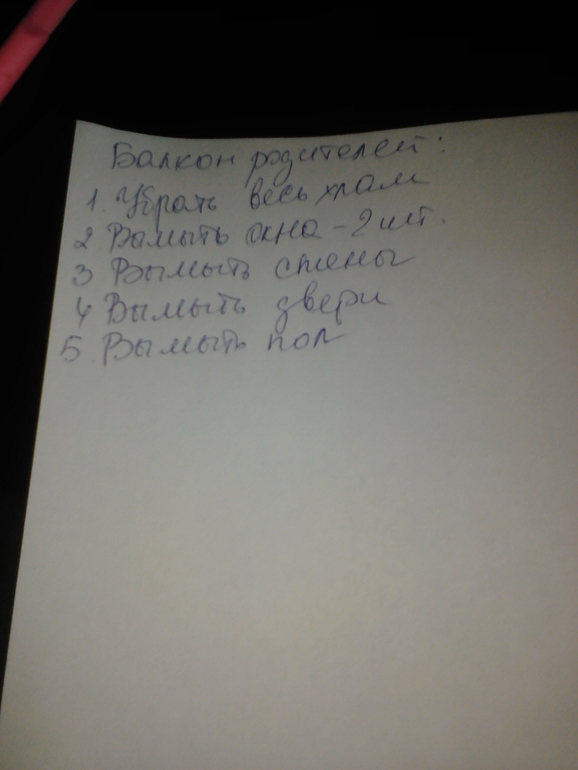 Балкон родителей:
1. Убрать весь хлам
2. Вымыть окна - 2 шт.
3 Вымыть стены
4 Вымыть двери
5. Вымыть пол